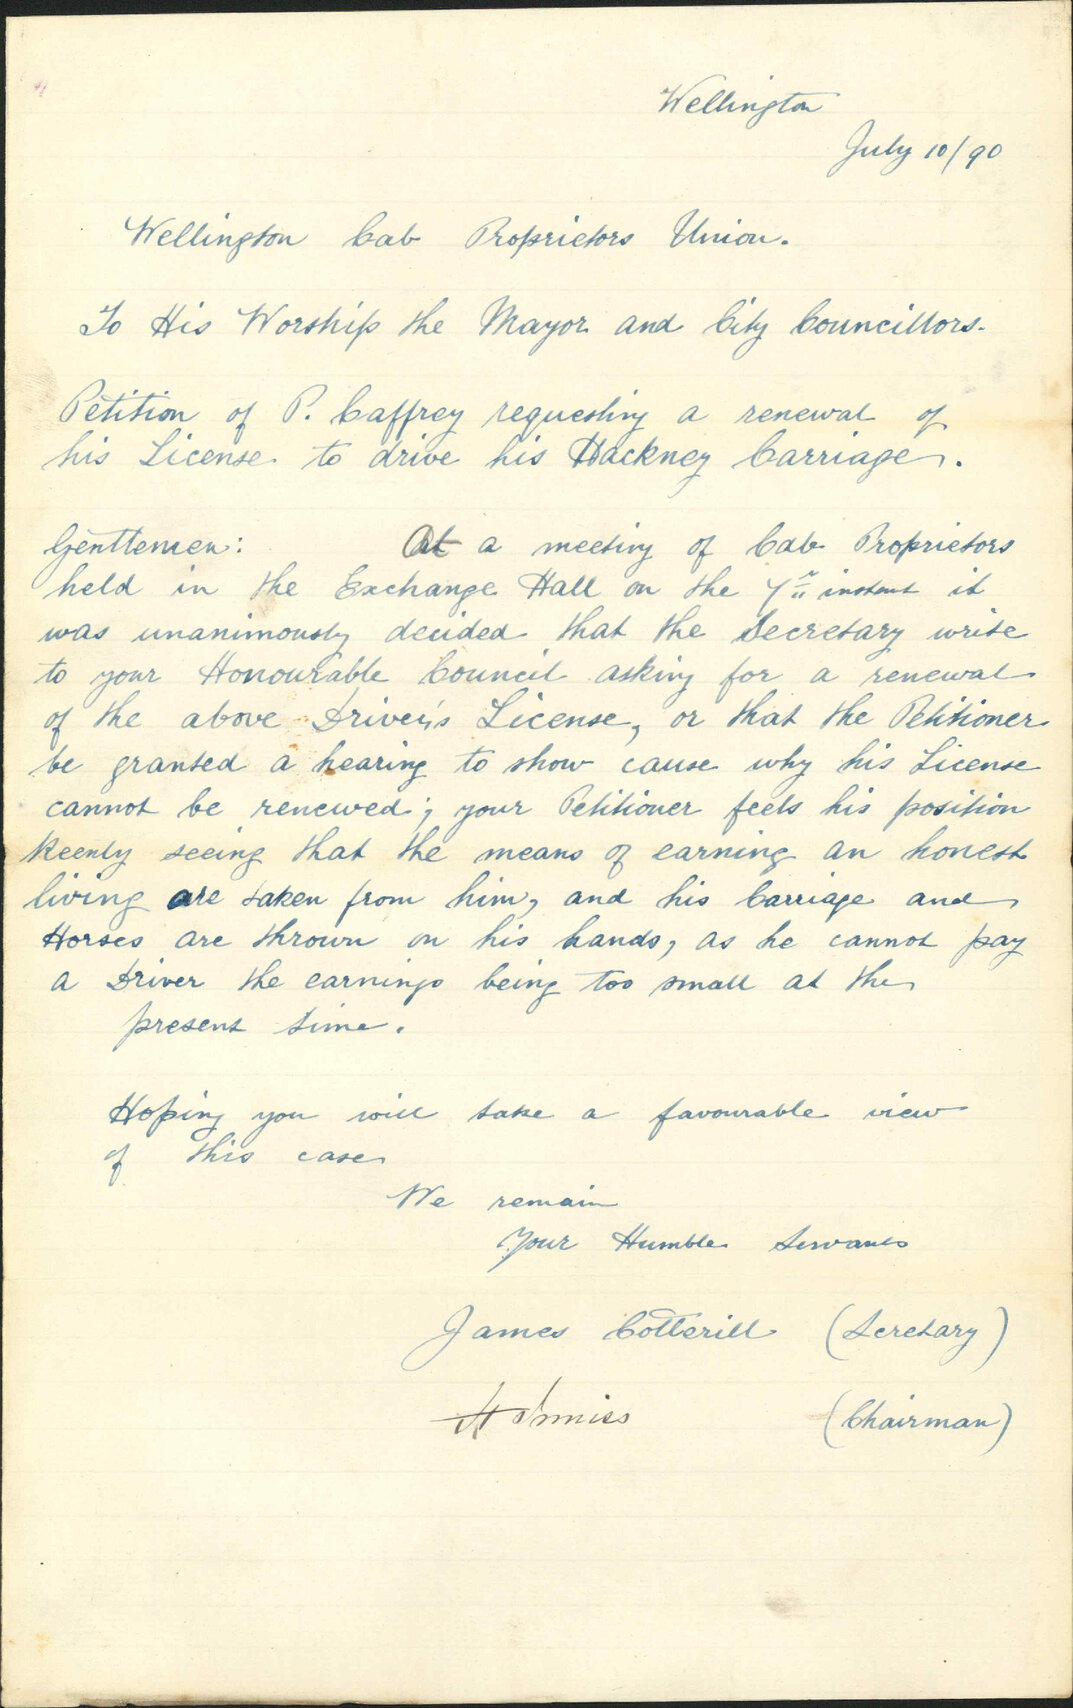 Wellington
July 10/90
Wellington Cab Proprietors Union.
To His Worship the Mayor and City Councillors.
Petition of P. Caffrey requesting a renewal of
his License to drive his Hackney Carriage.
Gentlemen: At a meeting of Cab Proprietors
held in the Exchange Hall on the instant it
was unanimously decided that the Secretary write
to your Honourable Council asking for a renewal
of the above Driver's License, or that the Petitioner
be granted a hearing to show cause why his License
cannot be renewed; your Petitioner feels his position
keenly seeing that the means of earning an honest
living are taken from him, and his Carriage and
Horses are thrown on his hands, as he cannot pay
a Driver the earnings being too small at the
present time.
Hoping you will take a favourable view
of this case
We remain
Your Humble Servants
James Cotterill (Secretary)
(Chairman)